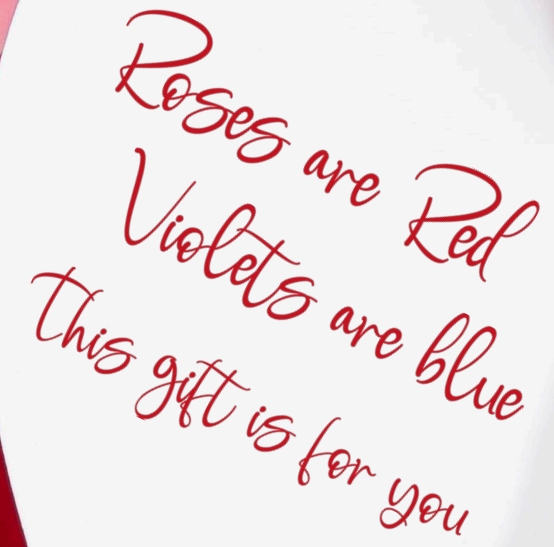 Roses are Red
Violets are blue
This gift is for you